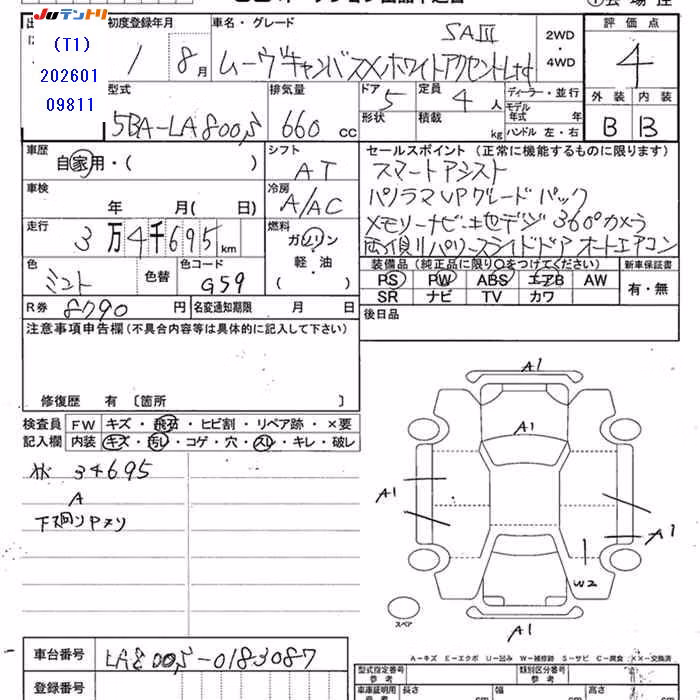 Juテントリ
(T1)
202601
09811
初度登録年月
1 8月
車名・グレード
SAⅢ
ムーヴキャンバスXホワイトアクセントLtd
2WD
・
4WD
評価点
4
外装 内装
B B
型式
5BA-LA800S
排気量
660 cc
ドア
5
定員
4 人
形状
積載
kg
ディーラー・並行
モデル
年式 年
ハンドル 左・右
車歴
自家用・( )
シフト
AT
車検
年 月( 日)
冷房
A/AC
走行
3万4千695km
燃料
ガソリン
・
軽・油
( )
色
ミント
色替
色コード
G59
R券
8790 円
名変通知期限 月 日
セールスポイント (正常に機能するものに限ります)
スマートアシスト
パノラマUPグレードパック
メモリーナビ・地デジ 360°カメラ
両側リパワースライドドア オートエアコン
装備品(純正品に限り○をつけてください)
PS PW ABS エアB AW
SR ナビ TV カワ
新車保証書
有・無
後日品
注意事項申告欄(不具合内容等は具体的に記入して下さい)
修復歴 有〔箇所 〕
検査員
記入欄
FW キズ・飛石・ヒビ割・リペア跡・×要
内装 キズ・汚レ・コゲ・穴・スレ・キレ・破レ
34695
A
下回りPメリ
A1
A1
A1
A1
W2
A1
スペア
A－キズ E－エクボ U－凹み W－補修跡 S－サビ C－腐食 ××－交換済
車台番号
LA800S-0183087
登録番号
型式指定番号
参考
類別区分番号
参考
車庫証明用
長さ
幅
高さ
cm
cm
cm